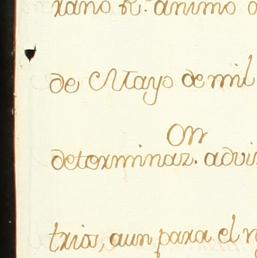 xano R.^ animo
de Mayo de mil
On
determinaz. advi
tria, aun para el